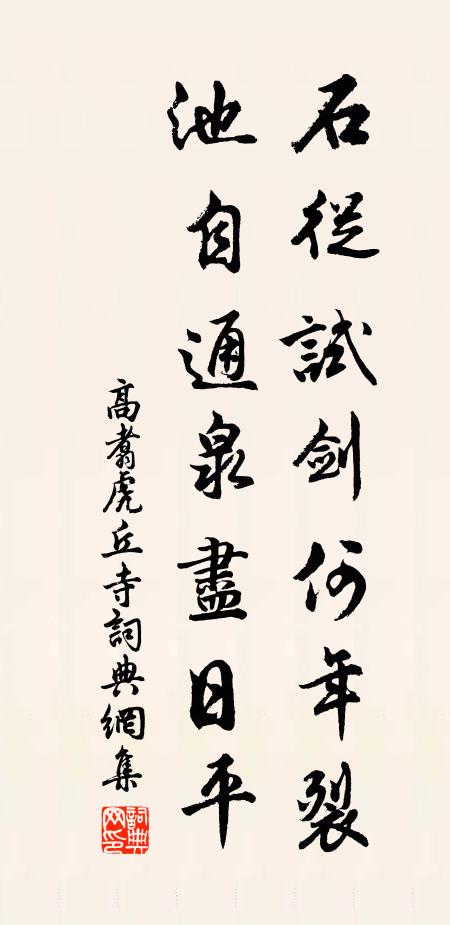 石從試劍何年裂
池自通泉盡日平
高翥虎丘寺詞典網集
詞典網印